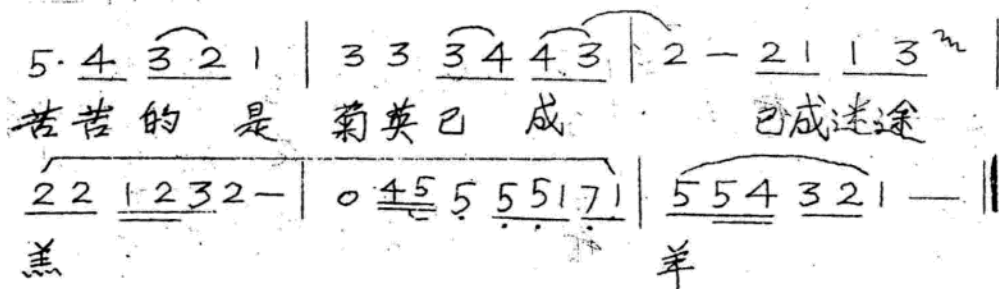 5· 4 3 2 1 | 3 3 3 4 4 3 | 2 — 2 1 1 3 |
苦苦的 是 菊英已 成 已成迷途
2 2 1 2 3 2 — | 0 4 5 5 5 5 1 7 1 | 5 5 4 3 2 1 — ‖
羔 羊